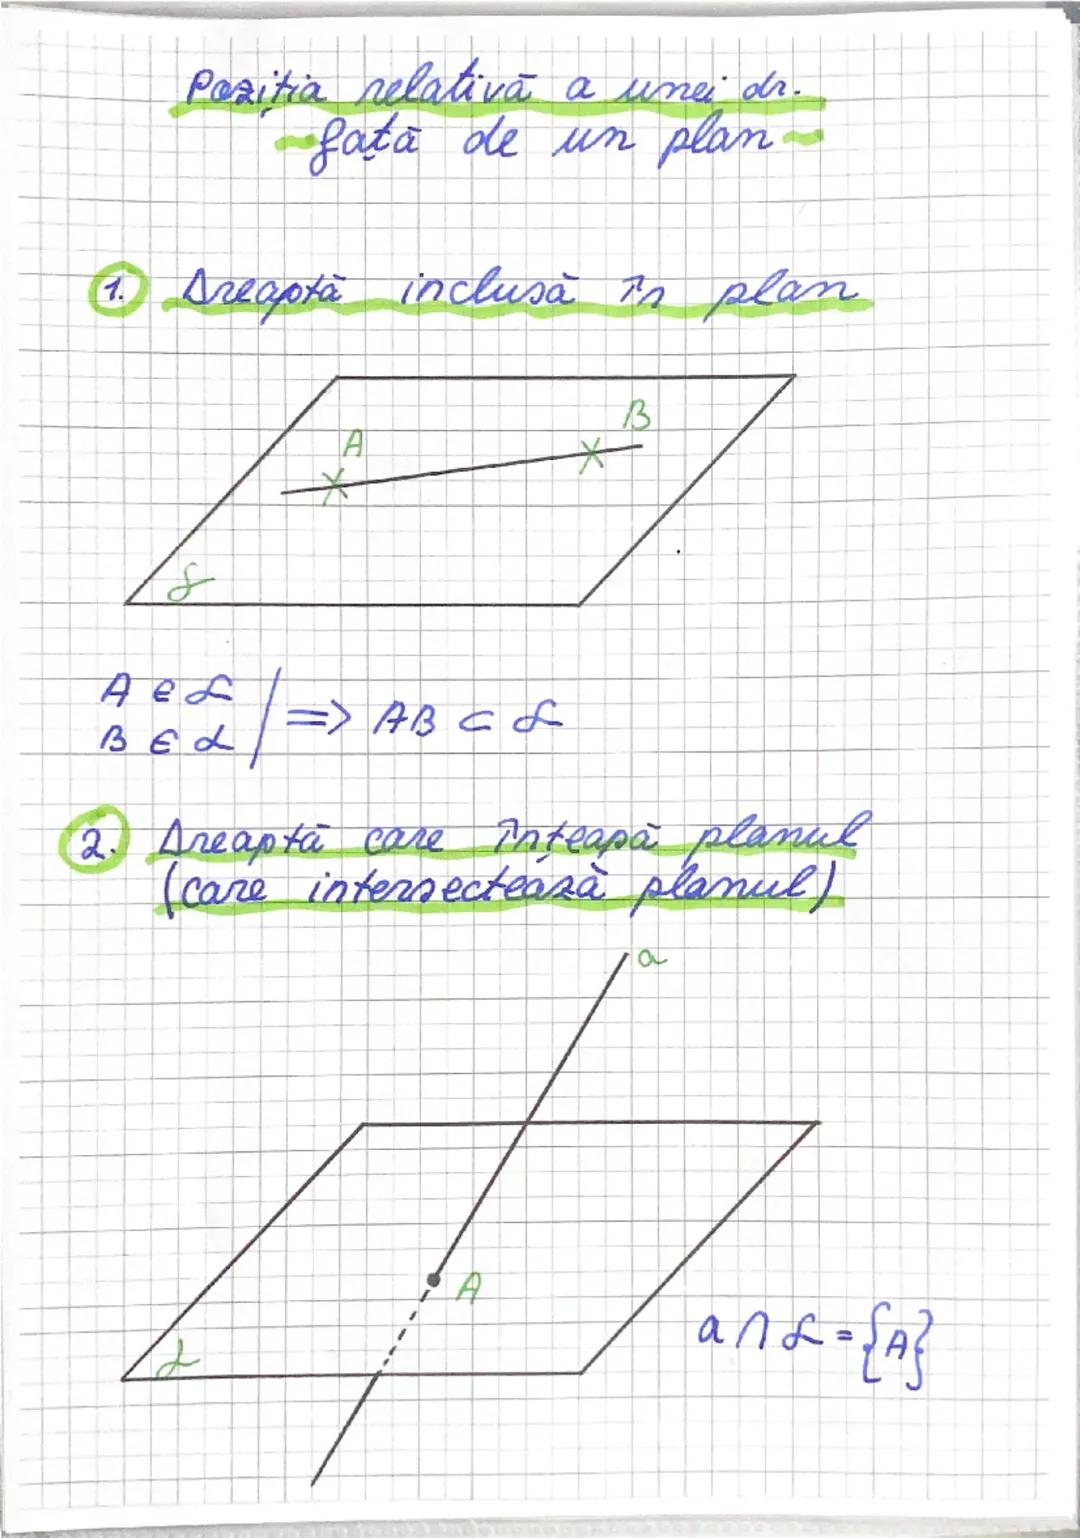 Poziția relativă a unei dr.
față de un plan
1. Dreaptă inclusă în plan
A
B
α
A ∈ α
B ∈ α
=> AB ⊂ α
2. Dreaptă care înțeapă planul
(care intersectează planul)
a
A
α
a ∩ α = {A}